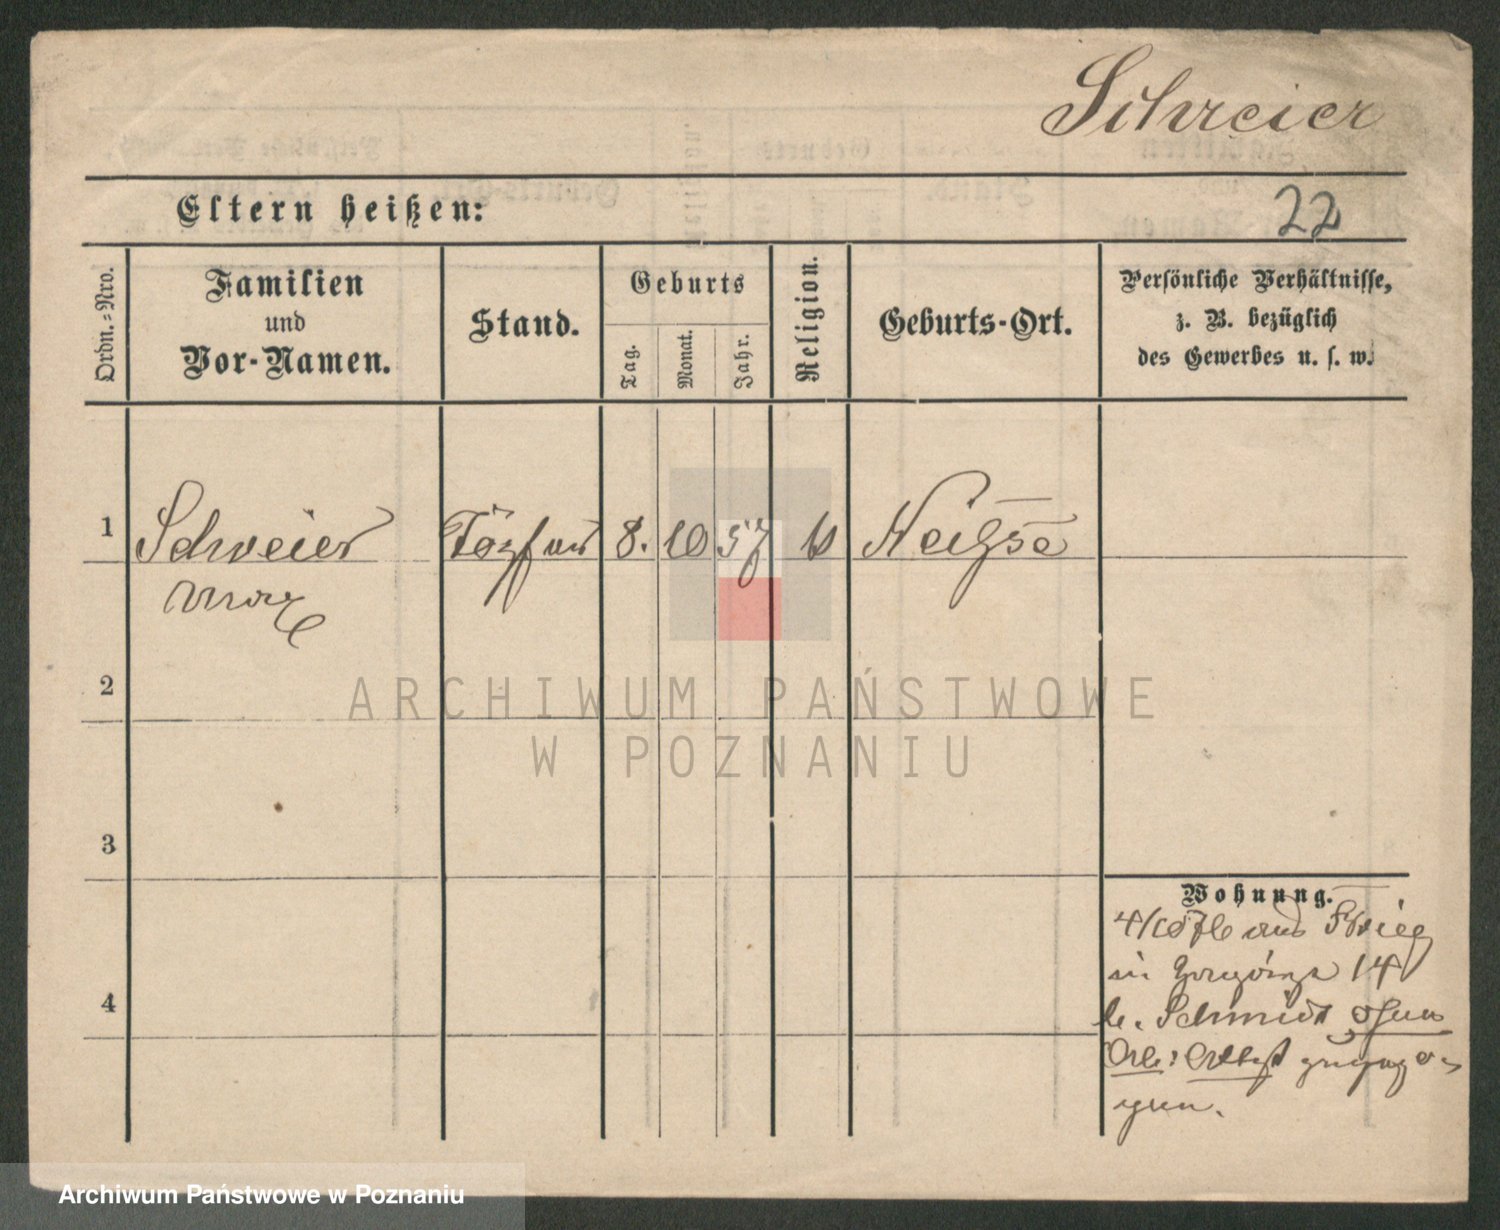 Schreier
Eltern heißen:
22
Ordn.-Nro.
Familien
und
Vor-Namen.
Stand.
Geburts
Tag.
Monat.
Jahr.
Religion.
Geburts-Ort.
Persönliche Verhältnisse,
z. B. bezüglich
des Gewerbes u. s. w.
1
Schreier
Max
Töpfer
8.
10
57
k
Neiße
2
3
4
Wohnung.
4/10 76 aus
in 14
b. Schmidt ohne
ARCHIWUM PAŃSTWOWE
W POZNANIU
Archiwum Państwowe w Poznaniu